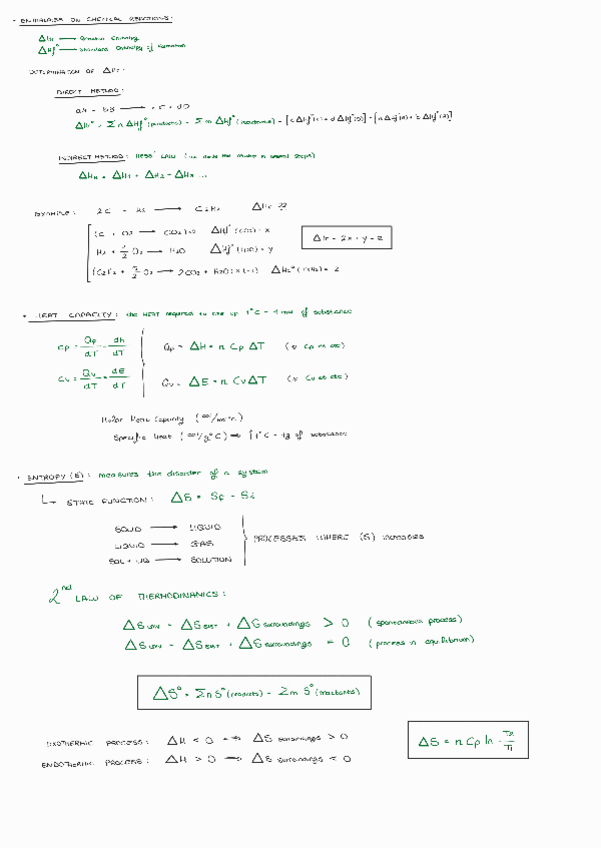 · ENTHALPIES ON CHEMICAL REACTIONS:
ΔHr → Reaction Enthalpy
ΔHf° → Standard Enthalpy of Formation
DETERMINATION OF ΔHr:
DIRECT METHOD:
aA + bB → cC + dD
ΔHr° = Σn ΔHf° (products) - Σm ΔHf° (reactants) = [c ΔHf°(C) + d ΔHf°(D)] - [a ΔHf°(A) + b ΔHf°(B)]
INDIRECT METHOD: Hess' LAW (in several steps)
ΔHr = ΔH1 + ΔH2 + ΔH3 ...
EXAMPLE: 2C + H2 → C2H2 ΔHr ??
(C + O2 → CO2)·2 ΔHf° (CO2) = x
H2 + 1/2 O2 → H2O ΔHf° (H2O) = y
(C2H2 + 5/2 O2 → 2CO2 + H2O) x (-1) ΔHc° (C2H2) = z
ΔHr = 2x + y - z
· HEAT CAPACITY: the HEAT required to rise up 1°C - 1 mol of substance
Cp = Qp/dT = dh/dT Qp = ΔH = n Cp ΔT (if Cp is ctc)
Cv = Qv/dT = dE/dT Qv = ΔE = n Cv ΔT (if Cv is ctc)
Molar Heat Capacity (cal/mol°C)
Specific Heat (cal/g°C) ⇒ ↑1°C - 1g of substance
· ENTROPY (S): measures the disorder of a system
↳ STATE FUNCTION: ΔS = Sf - Si
SOLID → LIQUID
LIQUID → GAS
SOL + LIQ → SOLUTION
PROCESSES WHERE (S) increases
2nd LAW OF THERMODINAMICS:
ΔS univ = ΔS syst + ΔS surroundings > 0 (spontaneous process)
ΔS univ = ΔS syst + ΔS surroundings = 0 (process in equilibrium)
ΔS° = Σn S° (products) - Σm S° (reactants)
EXOTHERMIC PROCESS: ΔH < 0 → ΔS surroundings > 0
ENDOTHERMIC PROCESS: ΔH > 0 → ΔS surroundings < 0
ΔS = n Cp ln T2/T1